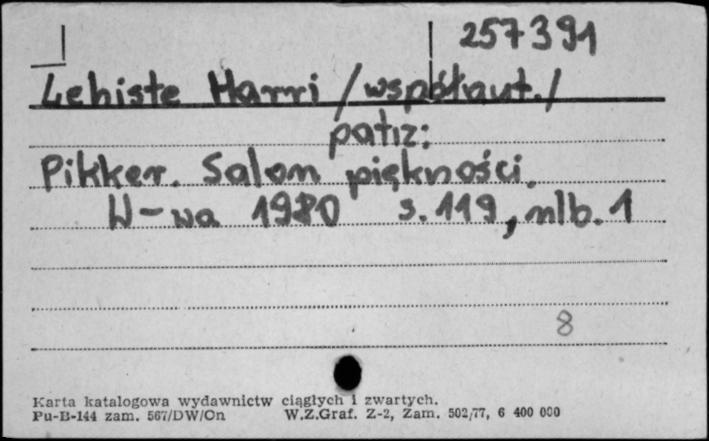 257391
Lehiste Harri /współaut./
patrz:
Pikker. Salon piękności.
W-wa 1980 s. 119, nlb. 1
8
Karta katalogowa wydawnictw ciągłych i zwartych.
Pu-B-144 zam. 567/DW/On W.Z.Graf. Z-2, Zam. 502/77, 6 400 000